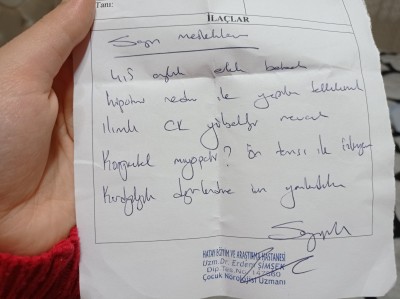 Tanı:
İLAÇLAR
Sayın meslektaşım
4,5 aylık erkek bebek
hipotoni nedeni ile yapılan tetkiklerinde
ılımlı CK yüksekliği mevcut
Konjenital miyopati? Ön tanısı ile
Kardiyolojik değerlendirme için yönlendirildi
Saygılarımla
HATAY EĞİTİM VE ARAŞTIRMA HASTANESİ
Uzm. Dr. Erdem ŞİMŞEK
Dip. Tes. No:
Çocuk Nörolojisi Uzmanı